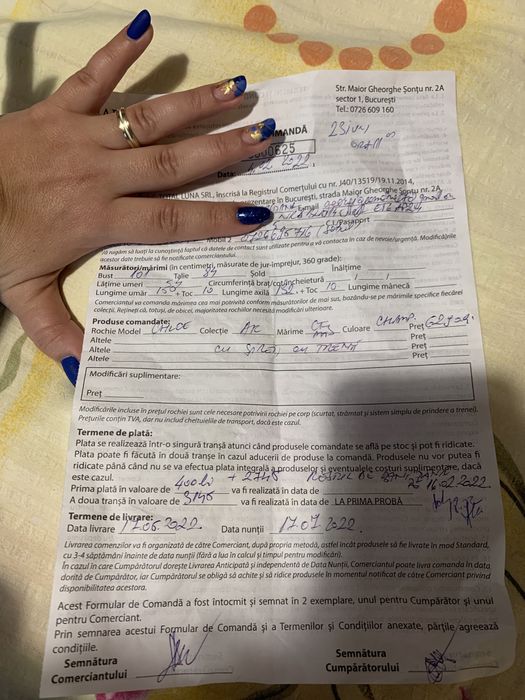 Str. Maior Gheorghe Șonțu nr. 2A
sector 1, București
Tel.: 0726 609 160
MANDĂ
000625
Data:
2022
LUNA SRL, înscrisă la Registrul Comerțului cu nr. J40/13519/19.11.2014,
prezentare în București, strada Maior Gheorghe Șonțu nr. 2A,
Email
C.I./Pașaport
Mobil
Vă rugăm să luați la cunoștință faptul că datele de contact sunt utilizate pentru a vă contacta în caz de nevoie/urgență. Modificările
acestor date trebuie să fie notificate comerciantului.
Măsurători/mărimi (în centimetri, măsurate de jur-împrejur, 360 grade):
Bust 101 Talie 84 Șold Înălțime
Lățime umeri Circumferință braț/cot/încheietură
Lungime umăr 150 + Toc 10 Lungime axilă + Toc 10 Lungime mânecă
Comerciantul va comanda mărimea cea mai potrivită conform măsurătorilor de mai sus, bazându-se pe mărimile specifice fiecărei
colecții. Rețineți că, totuși, de obicei, majoritatea rochiilor necesită modificări ulterioare.
Produse comandate:
Rochie Model CHLOE Colecție Mărime Culoare CHAMP. Preț
Altele Preț
Altele cu cu TRENĂ Preț
Altele Preț
Modificări suplimentare:
Preț
Modificările incluse în prețul rochiei sunt cele necesare potrivirii rochiei pe corp (scurtat, strâmtat și sistem simplu de prindere a trenei).
Prețurile conțin TVA, dar nu includ cheltuielile de transport, dacă este cazul.
Termene de plată:
Plata se realizează într-o singură tranșă atunci când produsele comandate se află pe stoc și pot fi ridicate.
Plata poate fi făcută în două tranșe în cazul aducerii de produse la comandă. Produsele nu vor putea fi
ridicate până când nu se va efectua plata integrală a produselor și eventualele costuri suplimentare, dacă
este cazul.
Prima plată în valoare de 400 lei + 2745 va fi realizată în data de 16.02.2022
A doua tranșă în valoare de 3145 va fi realizată în data de LA PRIMA PROBĂ
Termene de livrare:
Data livrare 17.06.2022. Data nunții 17.07.2022.
Livrarea comenzilor va fi organizată de către Comerciant, după propria metodă, astfel încât produsele să fie livrate în mod Standard,
cu 3-4 săptămâni înainte de data nunții (fără a lua în calcul și timpul pentru modificări).
În cazul în care Cumpărătorul dorește Livrarea Anticipată și independentă de Data Nunții, Comerciantul poate livra comanda în data
dorită de Cumpărător, iar Cumpărătorul se obligă să achite și să ridice produsele în momentul notificat de către Comerciant privind
disponibilitatea acestora.
Acest Formular de Comandă a fost întocmit și semnat în 2 exemplare, unul pentru Cumpărător și unul
pentru Comerciant.
Prin semnarea acestui Formular de Comandă și a Termenilor și Condițiilor anexate, părțile agreează
condițiile.
Semnătura Semnătura
Comerciantului Cumpărătorului